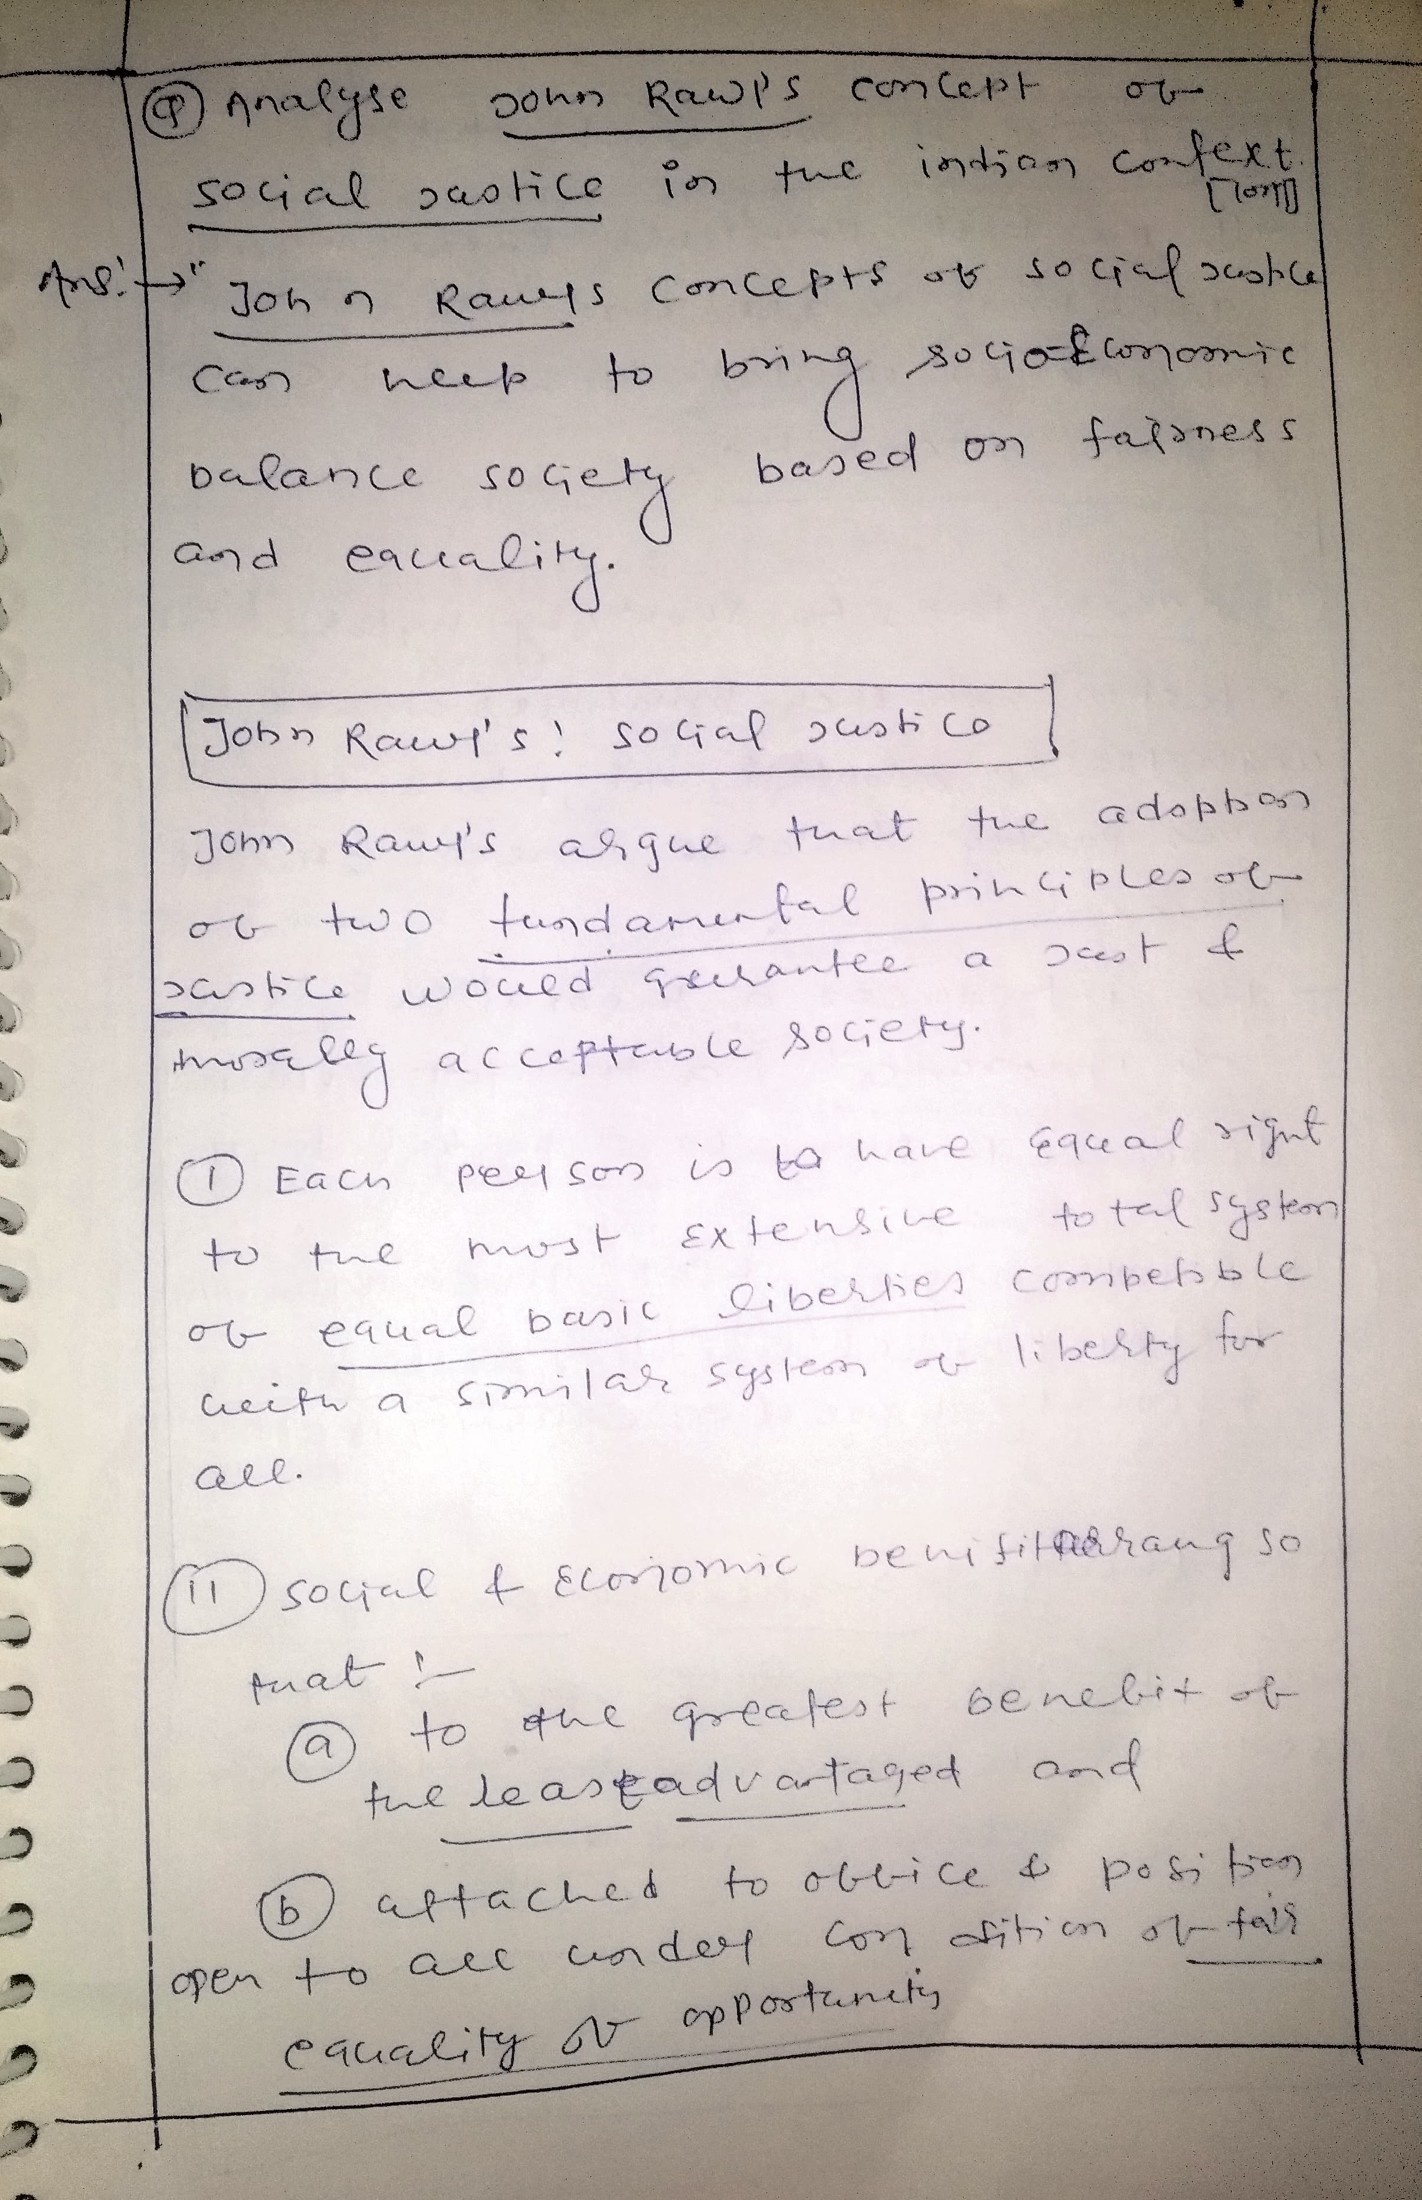 Q Analyse John Rawl's concept of
social Justice in the indian context.
[10m]
Ans:→" John Rawls concepts of social Justice
can help to bring socio-Economic
balance society based on fairness
and equality.
John Rawl's: social Justice
John Rawl's argue that the adoption
of two fundamental principles of
Justice would guarantee a Just &
morally acceptable society.
(I) Each person is to have equal right
to the most Extensive total system
of equal basic liberties compatible
with a similar system of liberty for
all.
(II) social & Economic benifit arrang so
that :-
(a) to the greatest benefit of
the least advantaged and
(b) attached to office & position
open to all under condition of fair
equality of opportunity